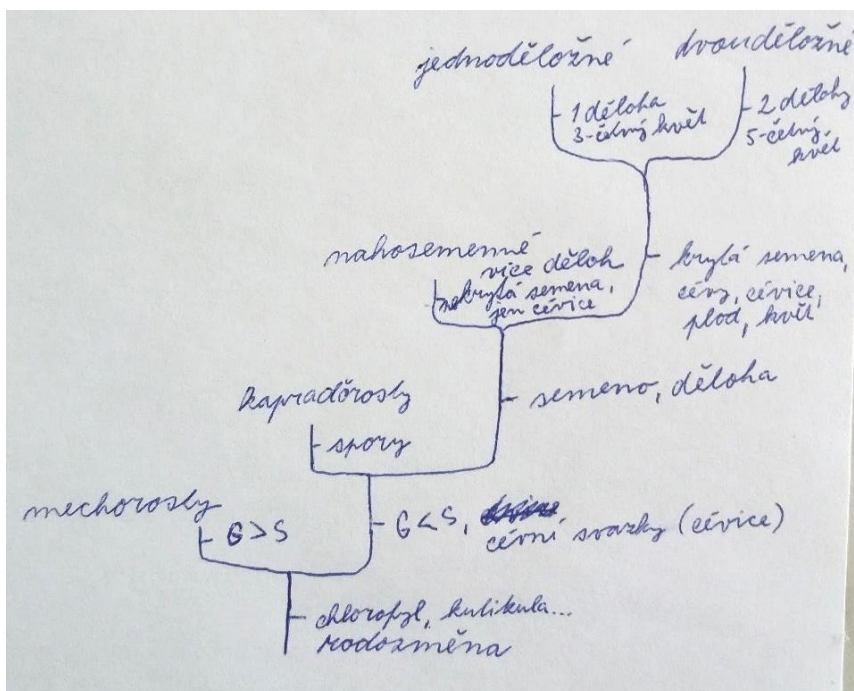 jednoděložné
dvouděložné
1 děloha
3-četný květ
2 dělohy
5-četný
květ
nahosemenné
více děloh
nekrytá semena,
jen cévice
krytá semena,
cévy, cévice,
plod, květ
kapraďorosty
spory
semeno, děloha
mechorosty
G>S
G<S,
cévní svazky (cévice)
chlorofyl, kutikula...
rodozměna